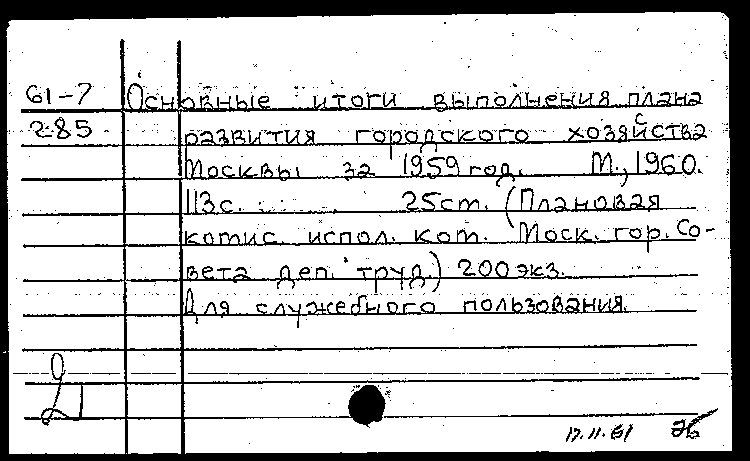 61-7 Основные итоги выполнения плана
285 развития городского хозяйства
Москвы за 1959 год. М., 1960.
113с. 25см. (Плановая
комис. испол. ком. Моск. гор. Со-
вета деп. труд.) 200 экз.
Для служебного пользования.
17.11.61